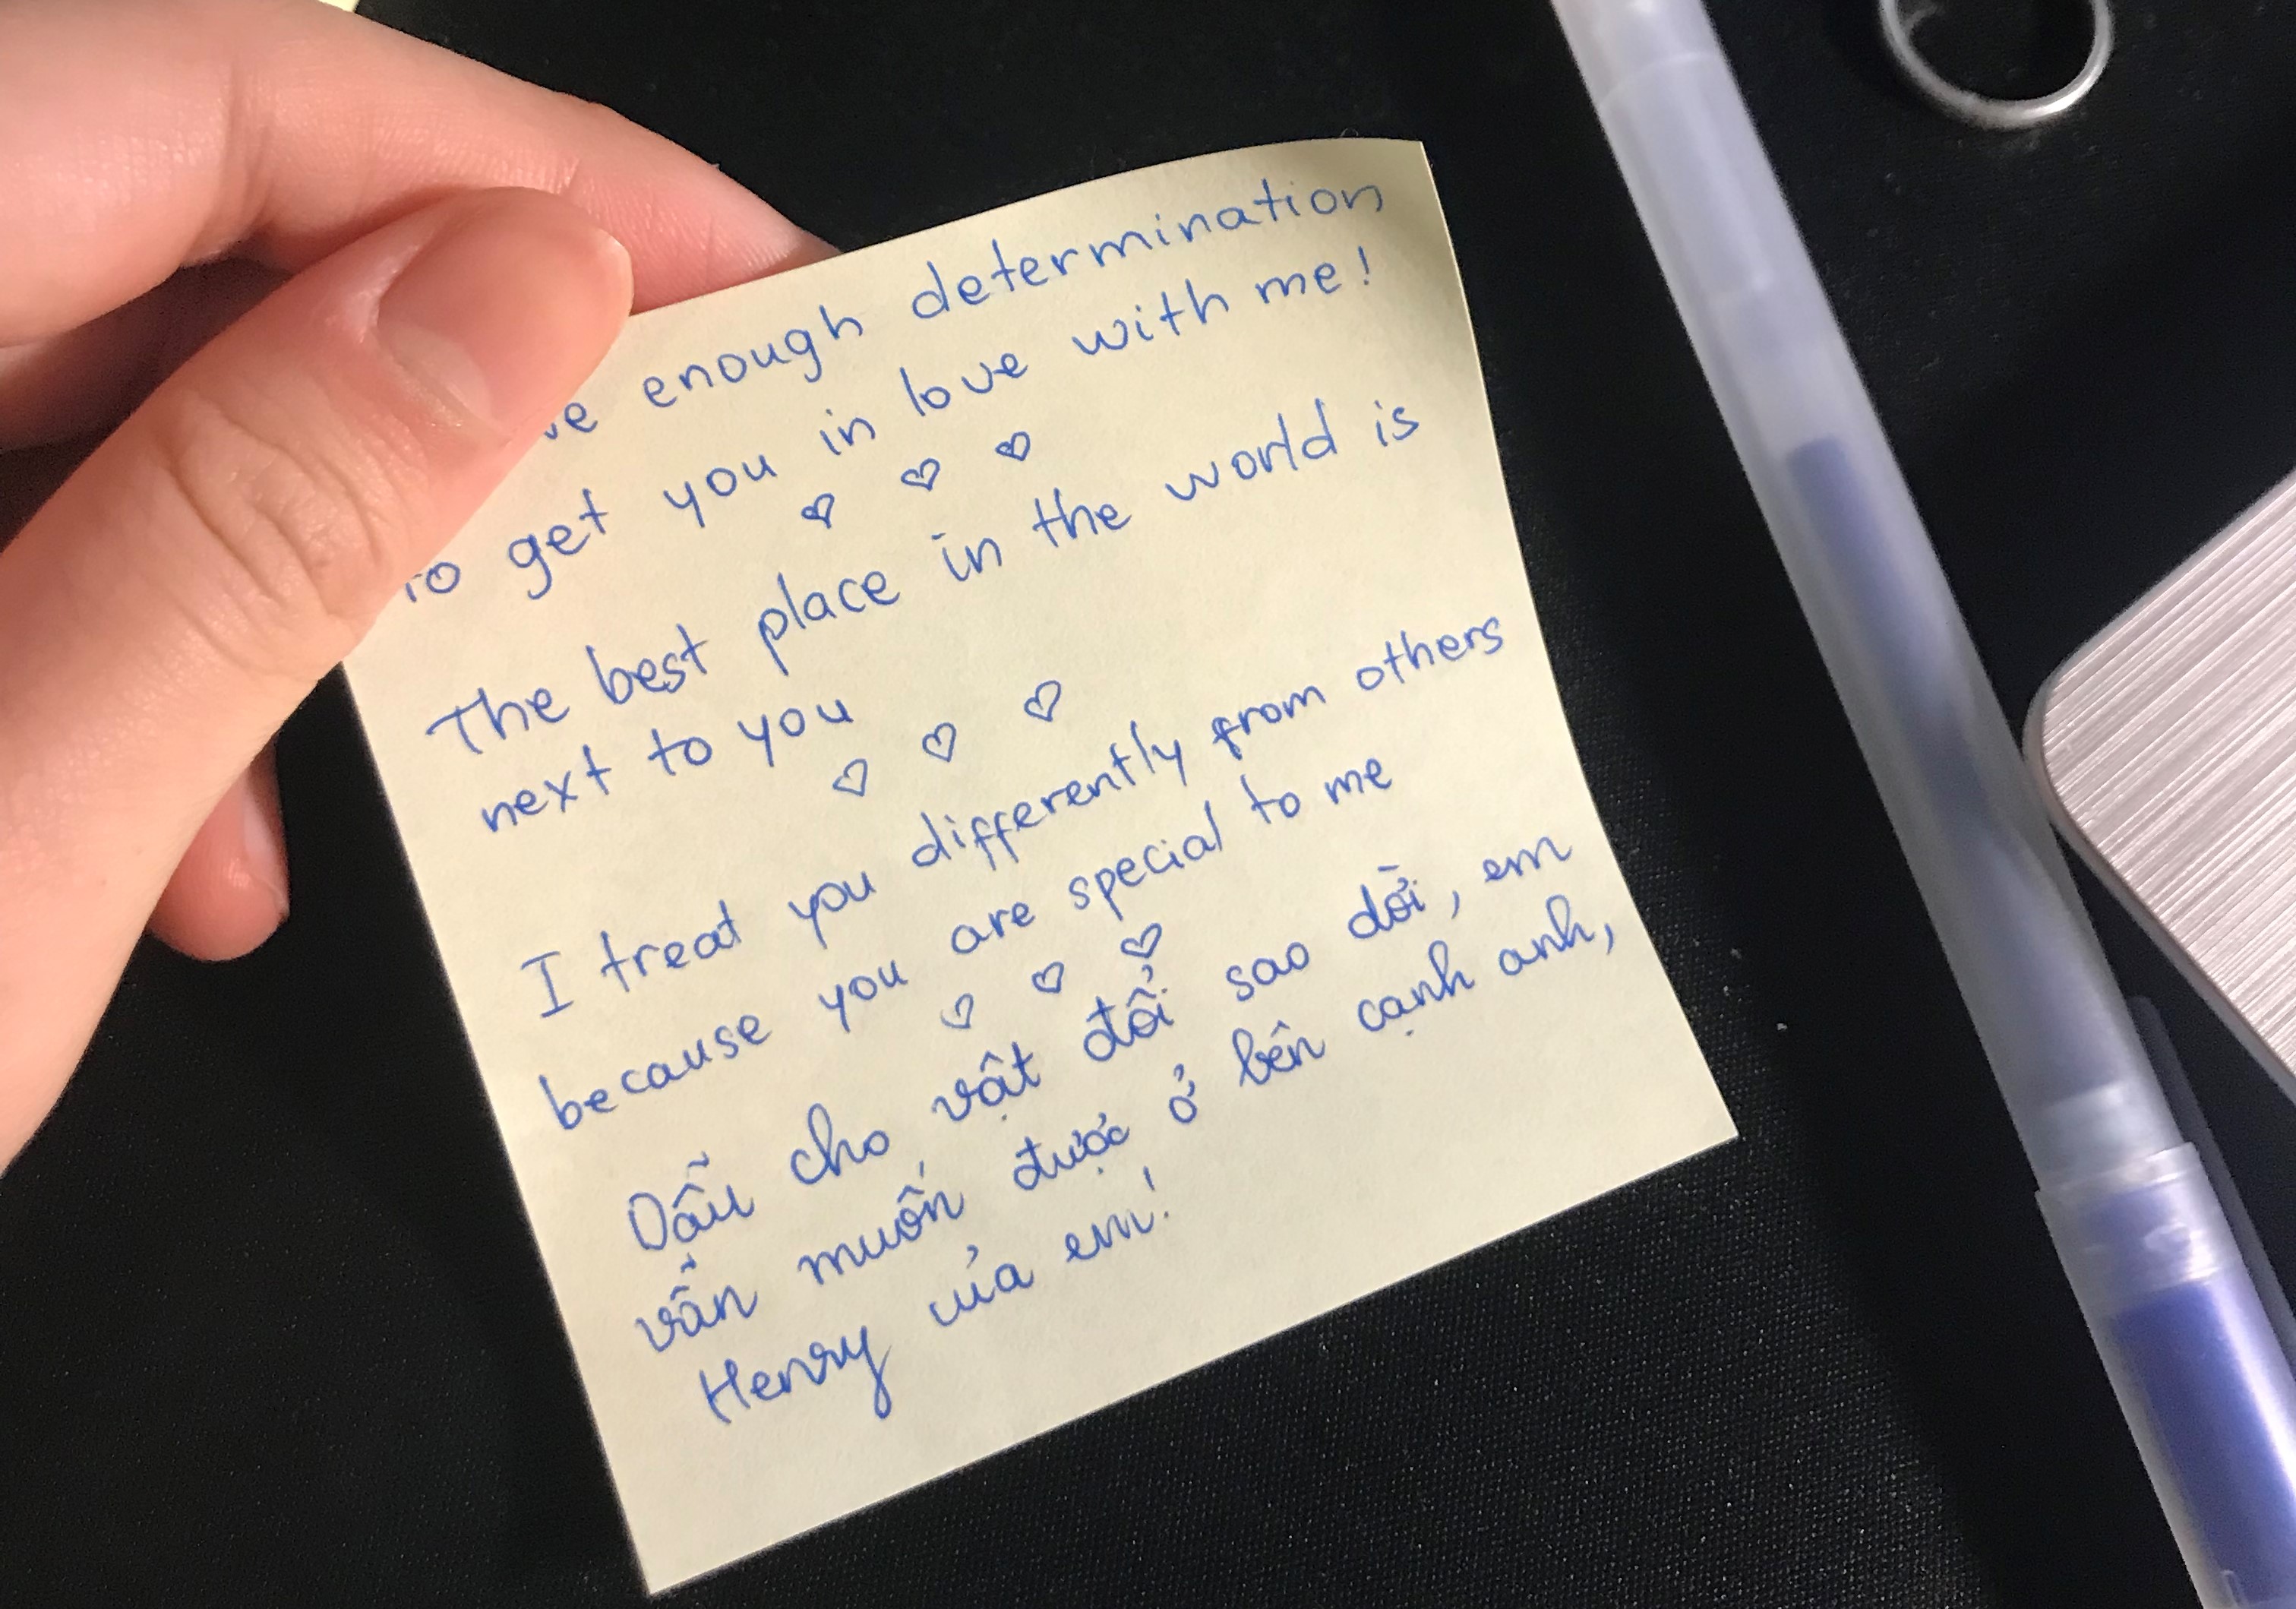 enough determination
to get you in love with me!
The best place in the world is
next to you
I treat you differently from others
because you are special to me
Dẫu cho vật đổi sao dời, em
vẫn muốn được ở bên cạnh anh,
Henry của em!